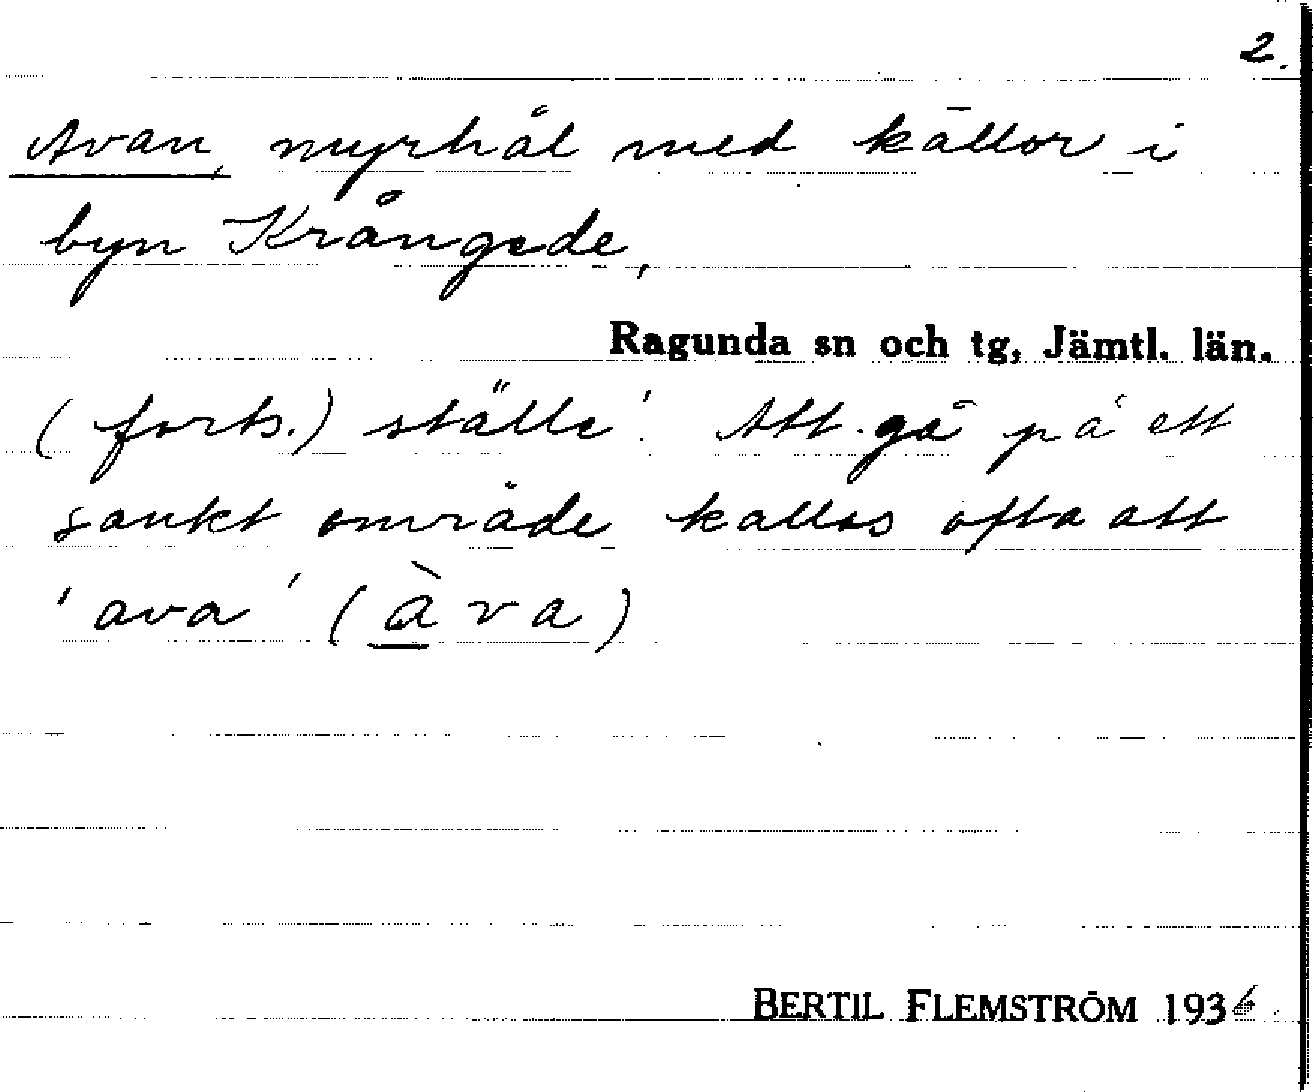 2.
Avan, myrhål med källor i
byn Krångede,
Ragunda sn och tg, Jämtl. län.
(forts.) ställe'. Att gå på ett
sankt område kallas ofta att
'ava' (àva)
BERTIL FLEMSTRÖM 1936